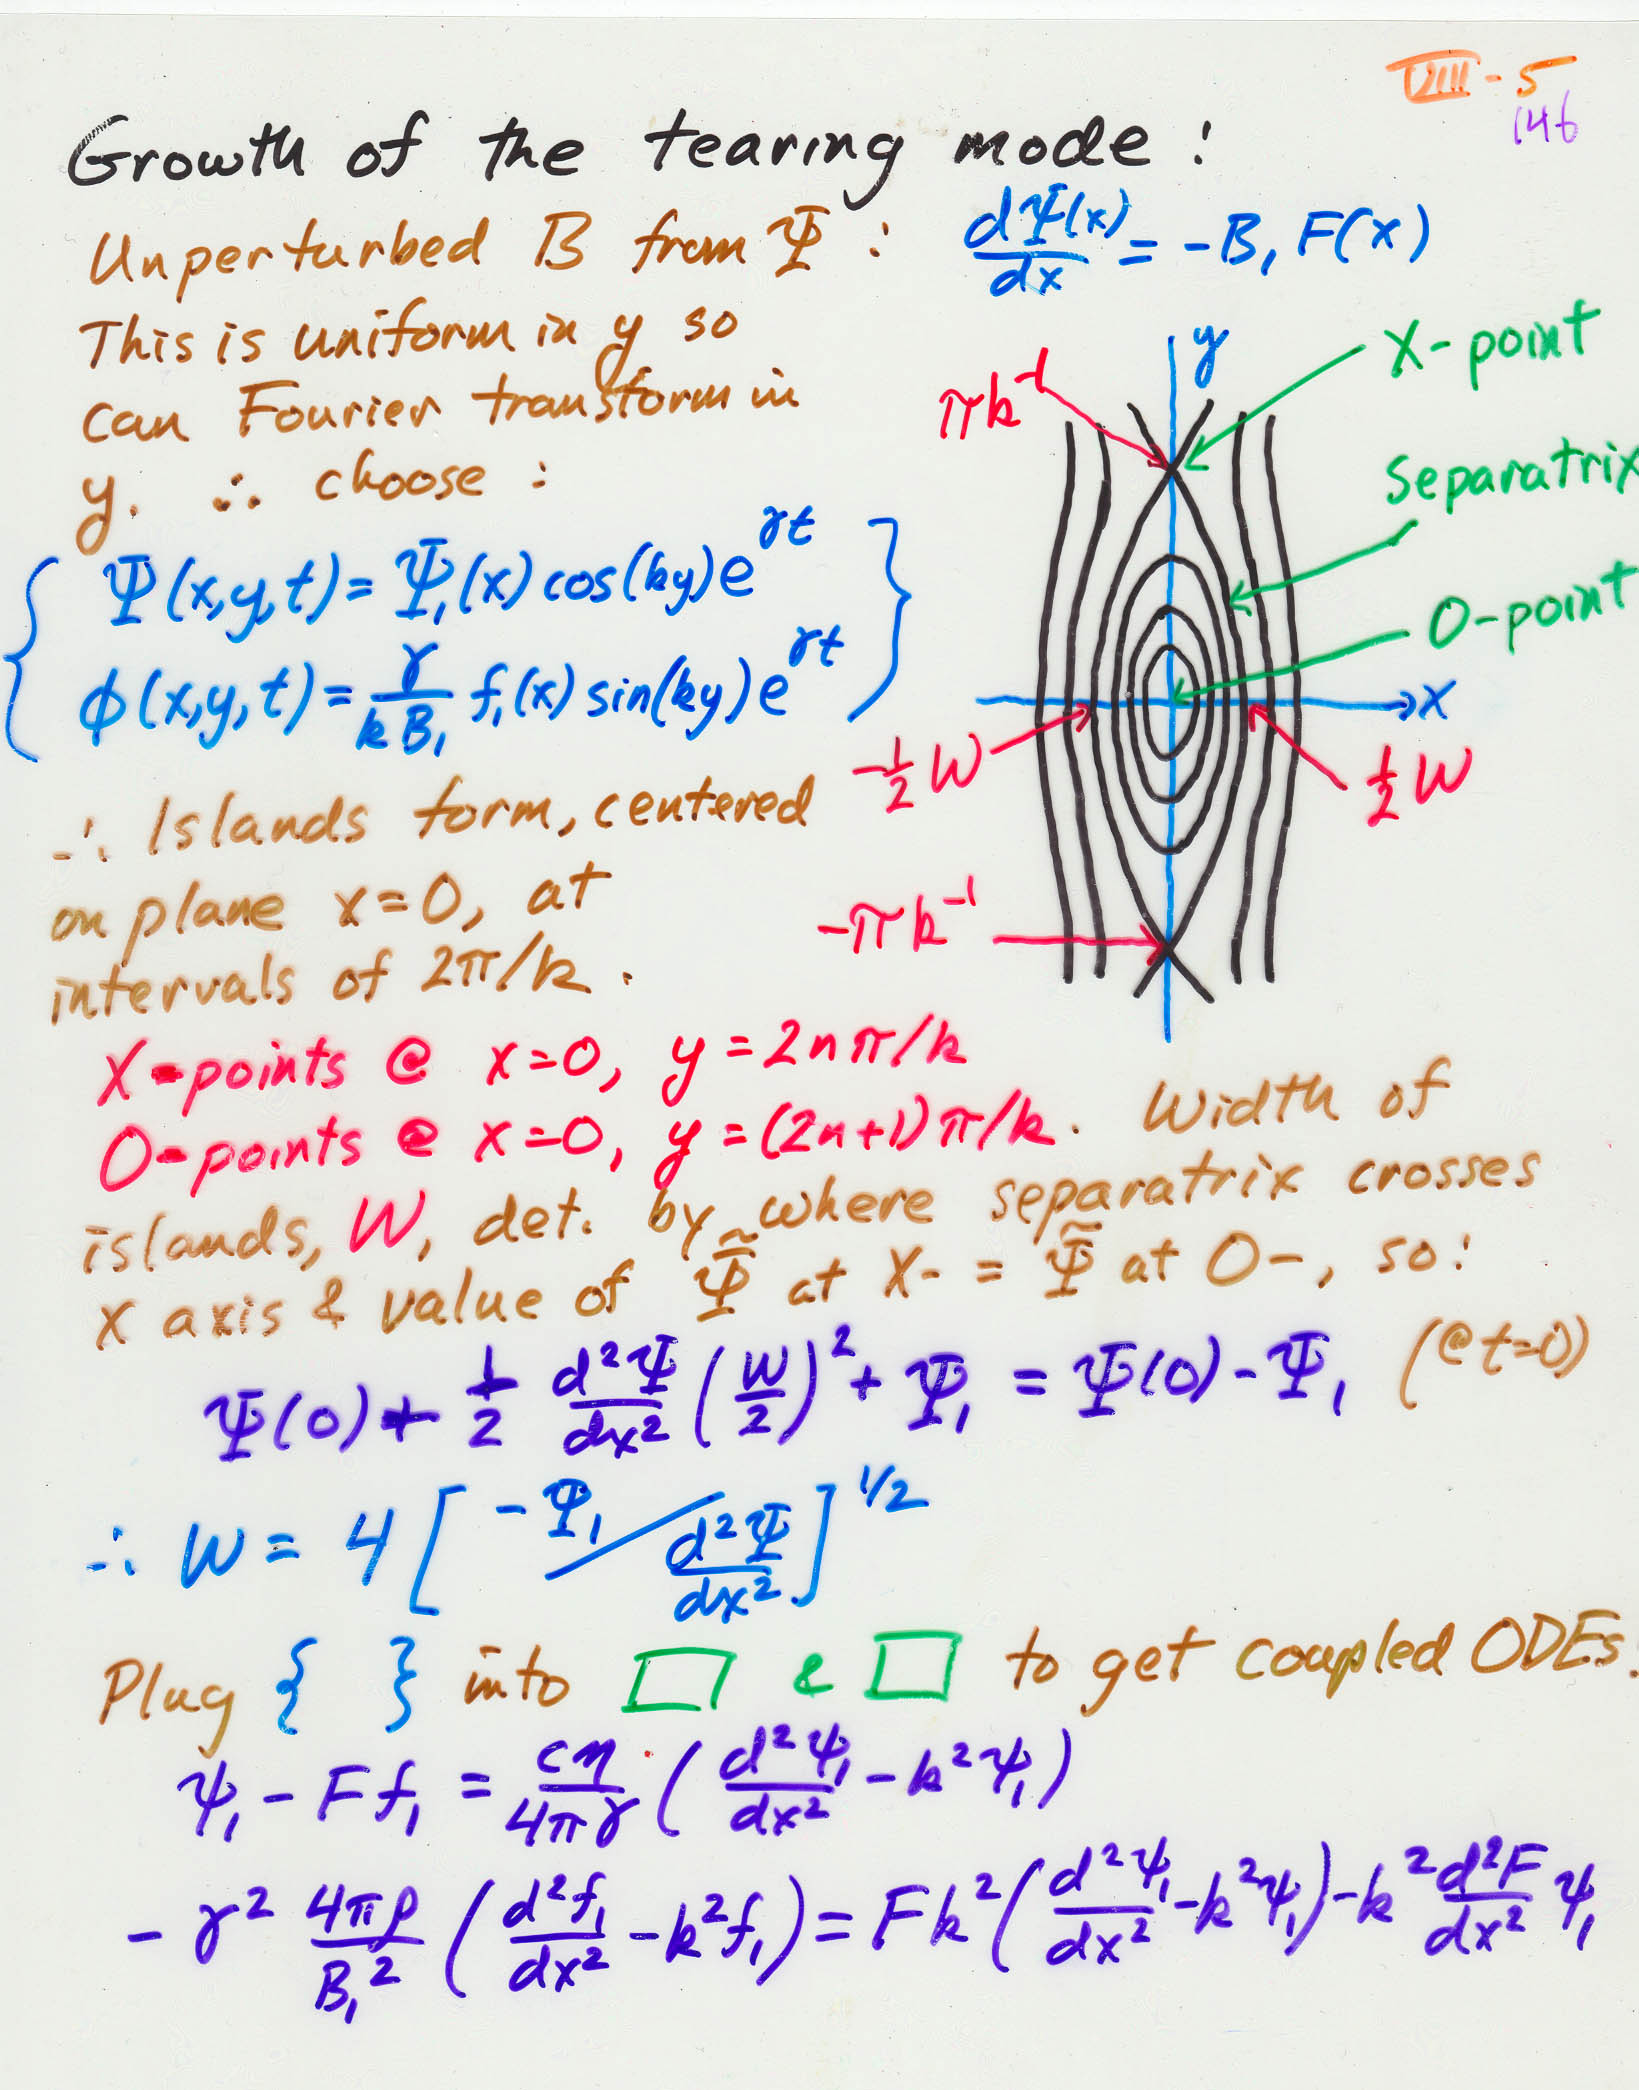 VIII - 5
146
Growth of the tearing mode :
Unperturbed B from Ψ : dΨ(x)/dx = -B₁ F(x)
This is uniform in y so
can Fourier transform in
y. ∴ choose :
{ Ψ(x,y,t) = Ψ₁(x) cos(ky) e^γt
ϕ(x,y,t) = γ/kB₁ f₁(x) sin(ky) e^γt }
y
X-point
πk⁻¹
Separatrix
O-point
x
-½ W
½ W
-πk⁻¹
∴ Islands form, centered
on plane x=0, at
intervals of 2π/k .
X-points @ x=0, y = 2nπ/k
O-points @ x=0, y = (2n+1)π/k. Width of
islands, W, det. by where separatrix crosses
x axis & value of Ψ̃ at X- = Ψ̃ at O-, so :
Ψ(0) + 1/2 d²Ψ/dx² (W/2)² + Ψ₁ = Ψ(0) - Ψ₁ (@ t=0)
∴ W = 4 [ -Ψ₁ / d²Ψ/dx² ]^1/2
Plug { } into □ & □ to get coupled ODEs.
ψ₁ - F f₁ = cη/4πγ ( d²ψ₁/dx² - k²ψ₁ )
- γ² 4πρ/B₁² ( d²f₁/dx² - k²f₁ ) = F k² ( d²ψ₁/dx² - k²ψ₁ ) - k² d²F/dx² ψ₁